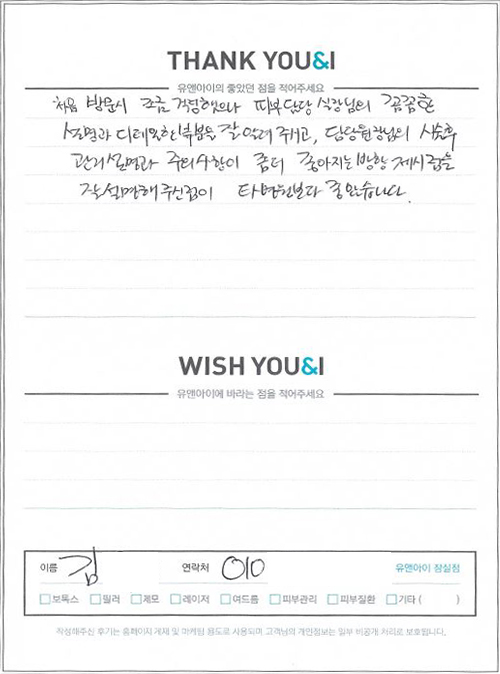 THANK YOU&I
유앤아이의 좋았던 점을 적어주세요
처음 방문시 조금 걱정했으나 피부담당 실장님의 꼼꼼한
설명과 디테일한 부분을 잘 알려주시고, 담당원장님의 시술후
관리 설명과 주의사항이 좀더 좋아지는 방향 제시점을
잘 설명해 주신점이 타병원보다 좋았습니다.
WISH YOU&I
유앤아이에 바라는 점을 적어주세요
이름 김 연락처 010 유앤아이 잠실점
보톡스 필러 제모 레이저 여드름 피부관리 피부질환 기타 ( )
작성해주신 후기는 홈페이지 게재 및 마케팅 용도로 사용되며 고객님의 개인정보는 일부 비공개 처리로 보호됩니다.